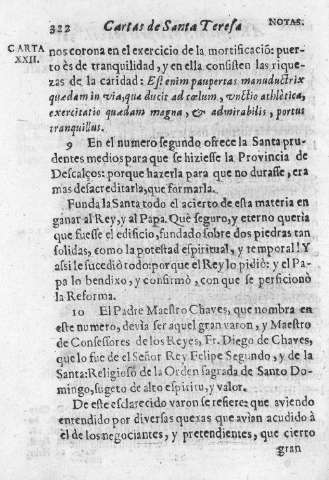 322 Cartas de Santa Teresa NOTAS.
CARTA
XXII.
nos corona en el exercicio de la mortificaciō: puer-
to ès de tranquilidad, y en ella consisten las rique-
zas de la caridad: Est enim paupertas manuductrix
quædam in via, quæ ducit ad cœlum, vnctio athletica,
exercitatio quædam magna, & admirabilis, portus
tranquillus.
9 En el numero segundo ofrece la Santa pru-
dentes medios para que se hiziesse la Provincia de
Descalços: porque hazerla para que no durasse, era
mas desacreditarla, que formarla.
Funda la Santa todo el acierto de esta materia en
ganar al Rey, y al Papa. Què seguro, y eterno queria
que fuesse el edificio, fundado sobre dos piedras tan
solidas, como la potestad espiritual, y temporal! Y
assi le sucediò todo: porque el Rey lo pidiò: y el Pa-
pa lo bendixo, y confirmò, con que se perficionò
la Reforma.
10 El Padre Maestro Chaves, que nombra en
este numero, devia ser aquel gran varon, y Maestro
de Confessores de los Reyes, Fr. Diego de Chaves,
que lo fue de el Señor Rey Felipe Segundo, y de la
Santa: Religioso de la Orden sagrada de Santo Do-
mingo, sugeto de alto espiritu, y valor.
De este esclarecido varon se refiere: que aviendo
entendido por diversas quexas que avian acudido à
èl de los negociantes, y pretendientes, que cierto
gran